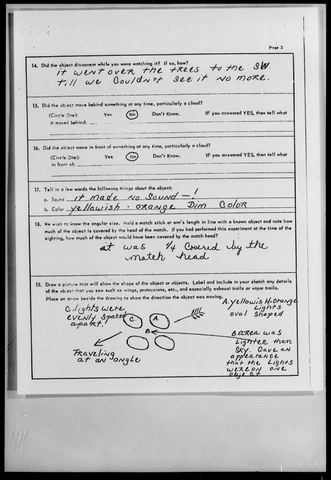 Page 3
14. Did the object disappear while you were watching it? If so, how?
it went over the trees to the SW.
till we Couldn't see it no more.
15. Did the object move behind something at any time, particularly a cloud?
(Circle One): Yes No Don't Know. IF you answered YES, then tell what
it moved behind:
16. Did the object move in front of something at any time, particularly a cloud?
(Circle One): Yes No Don't Know. IF you answered YES, then tell what
in front of:
17. Tell in a few words the following things about the object:
a. Sound it made no sound -!
b. Color yellowish - orange Dim Color
18. We wish to know the angular size. Hold a match stick at arm's length in line with a known object and note how
much of the object is covered by the head of the match. If you had performed this experiment at the time of the
sighting, how much of the object would have been covered by the match head?
at was 1/4 Covered by the
match head
19. Draw a picture that will show the shape of the object or objects. Label and include in your sketch any details
of the object that you saw such as wings, protrusions, etc., and especially exhaust trails or vapor trails.
Place an arrow beside the drawing to show the direction the object was moving.
C. lights were
evenly spaced
apart.
A. yellowish Orange
Lights
oval shaped
C. A.
B
B area was
Lighter than
Sky. Gave an
appearance
that the Lights
were on one
object
Traveling
at an angle